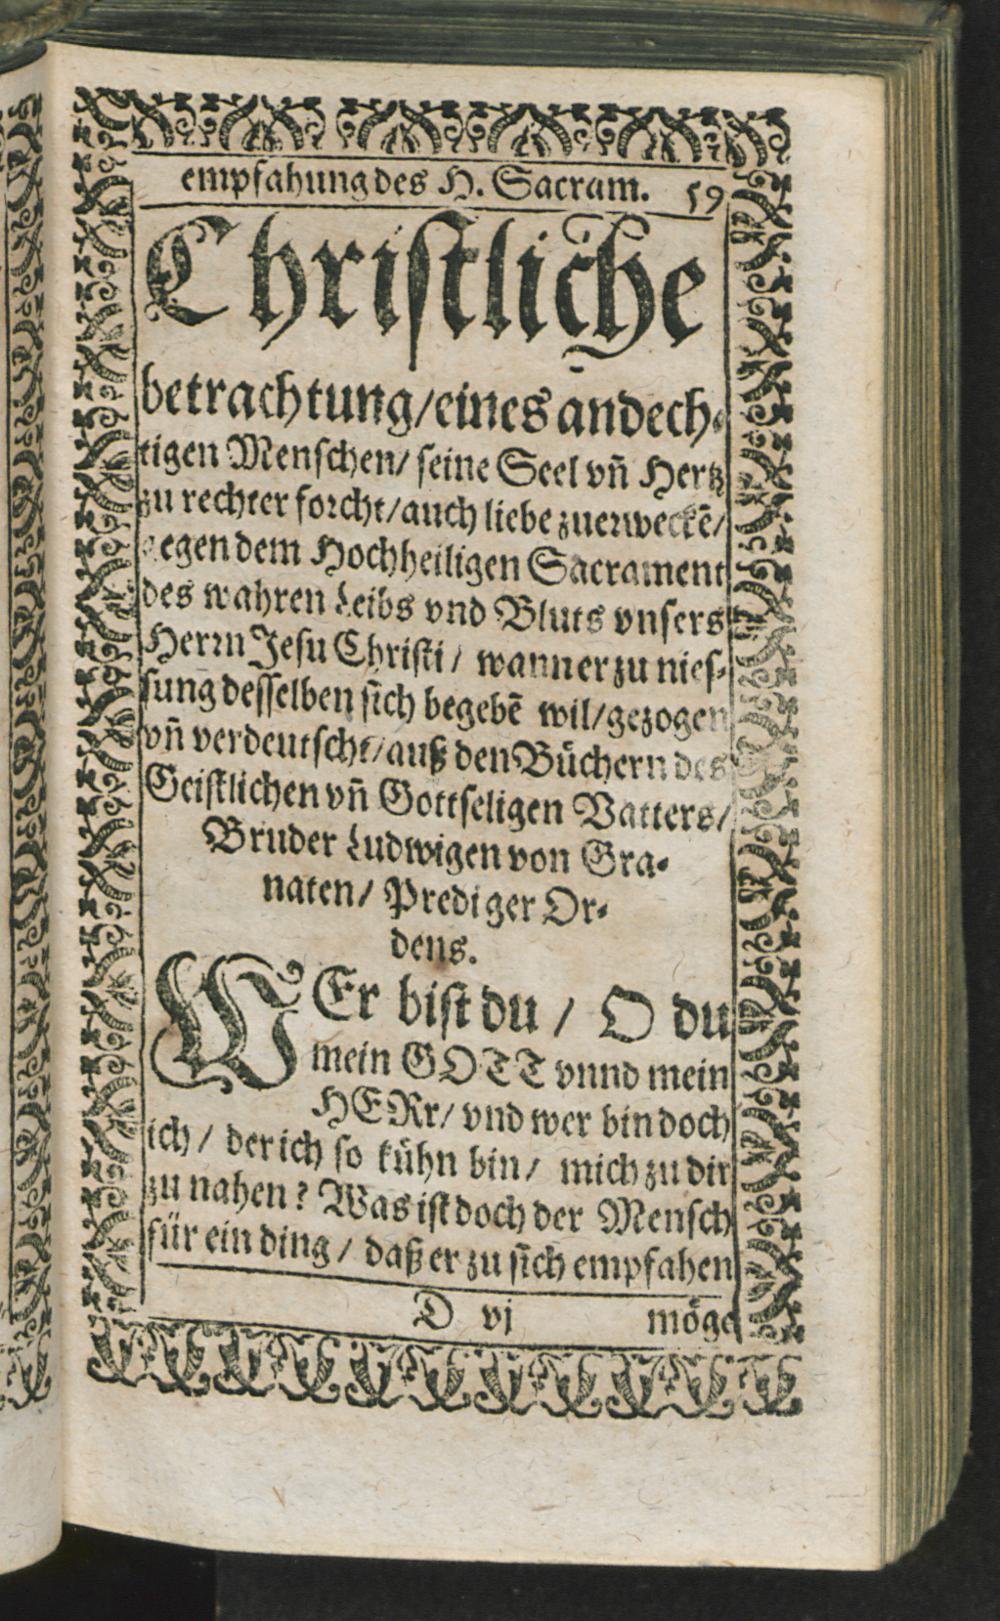 empfahung des H. Sacram. 59
Christliche
betrachtung/eines andech⸗
tigen Menschen/ seine Seel vñ Hertz
zu rechter forcht/auch liebe zuerweckẽ/
gegen dem Hochheiligen Sacrament
des wahren Leibs vnd Bluts vnsers
Herrn Jesu Christi/ wann er zu nies⸗
sung desselben sich begebẽ wil/gezogen
vñ verdeutscht/auß den Bůchern des
Geistlichen vñ Gottseligen Vatters/
Bruder Ludwigen von Gra⸗
naten/ Prediger Or⸗
dens.
WEr bist du/ O du
mein GOTT vnnd mein
HERr/ vnd wer bin doch
ich/ der ich so kůhn bin/ mich zu dir
zu nahen? Was ist doch der Mensch
für ein ding/ daß er zu sich empfahen
D vj möge